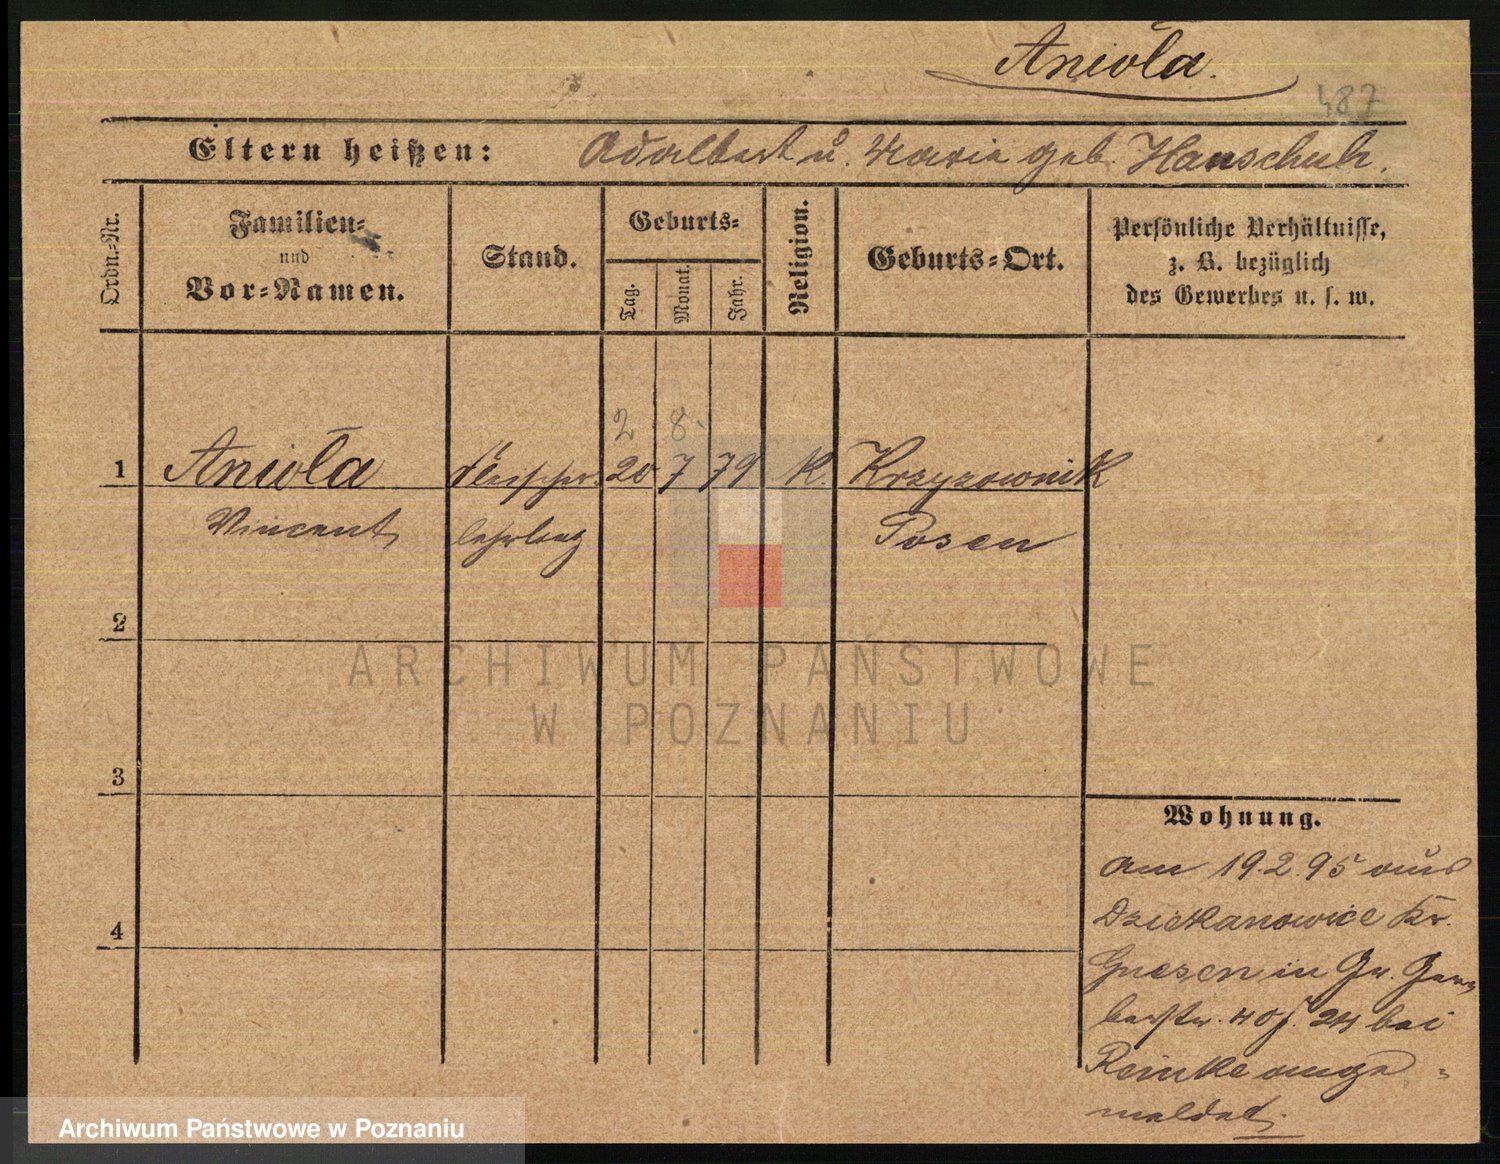 Anioła.
487
Eltern heißen: Adalbert u. Marie geb. Hanschuh.
Ordn.-Nr.
Familien-
und
Vor-Namen.
Stand.
Geburts-
Tag.
Monat.
Jahr.
Religion.
Geburts-Ort.
Persönliche Verhältnisse,
z. B. bezüglich
des Gewerbes u. s. w.
2. 8.
1 Anioła Fleischer 20 7 79 K. Krzyzownik
Vincent lehrling Posen
2
ARCHIWUM PAŃSTWOWE
W POZNANIU
3
4
Wohnung.
am 19.2.95 aus
Dziekanowice Kr.
Gnesen in Gr. Ger
berstr. 40 24 bei
Reinke ange=
meldet.
Archiwum Państwowe w Poznaniu